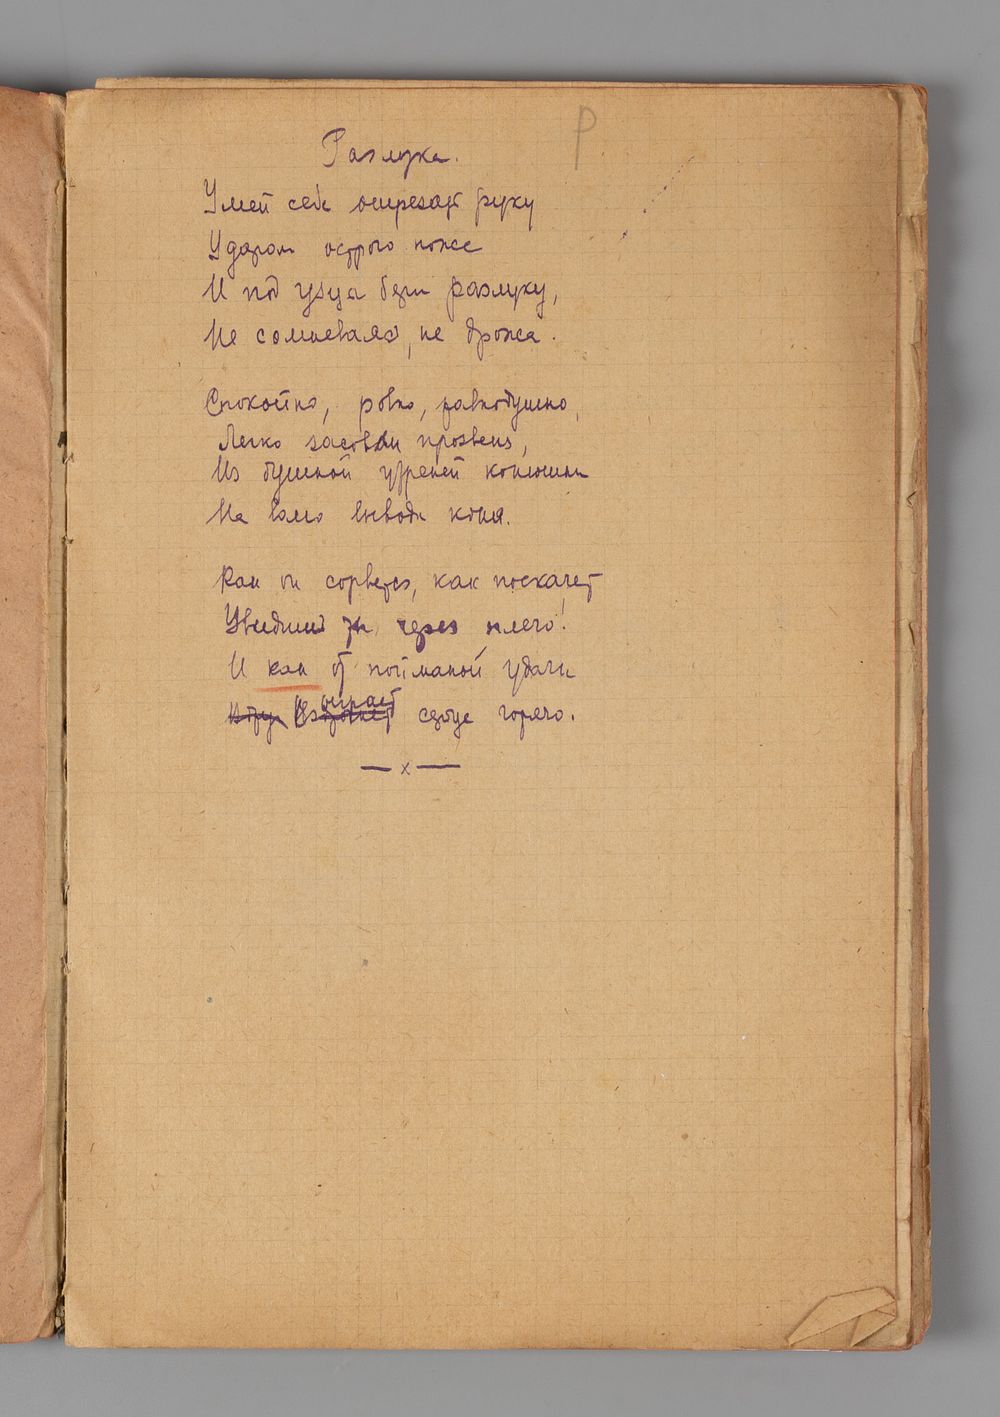 Р
Разлука.
Умей себе отрезать руку
Ударом острого ножа
И под уздцы бери разлуку,
Не сомневаясь, не дрожа.
Спокойно, ровно, равнодушно,
Легко засовами прозвеня,
Из душной утренней конюшни
На волю выводи коня.
Как он сорвется, как поскачет
Увидишь ты через плечо!
И как от пойманой удачи
отпрает сердце горячо.
— х —